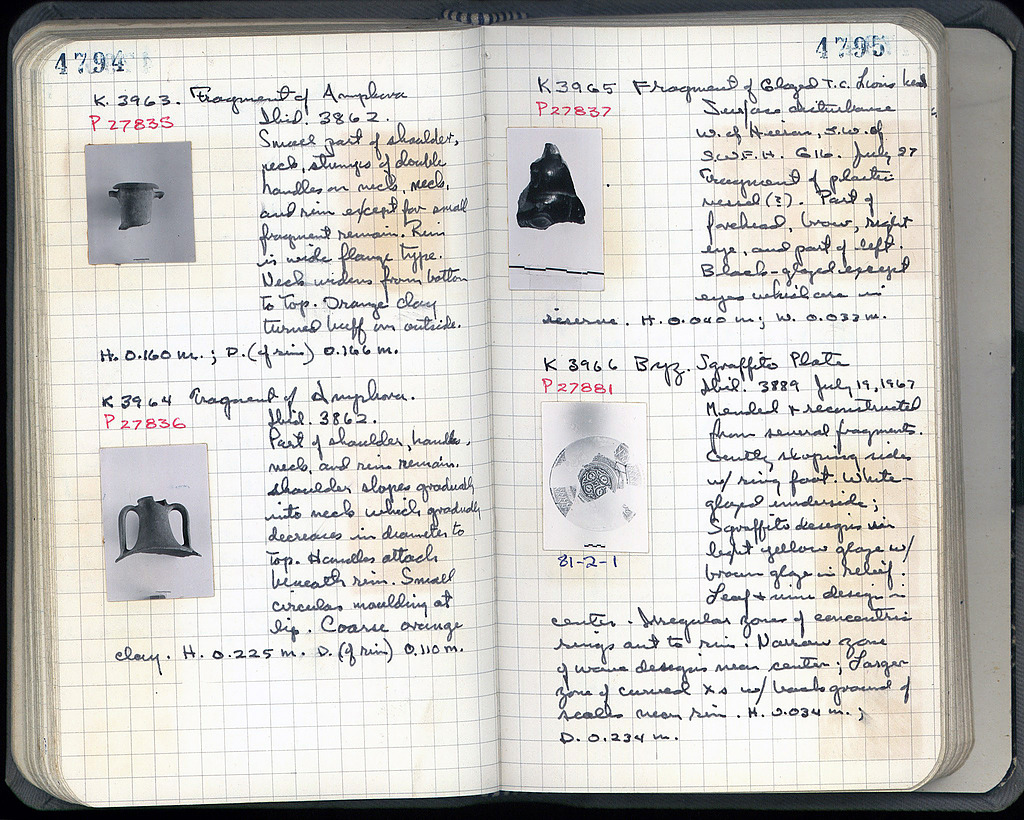 4794
K. 3963. Fragment of Amphora
P 27835
Ibid. 3862.
Small part of shoulder,
neck, stumps of double
handles on neck, neck,
and rim except for small
fragment remain. Rim
is wide flange type.
Neck widens from bottom
to top. Orange clay
turned buff on outside.
H. 0.160 m. ; D. (of rim) 0.166 m.
K 3964 Fragment of Amphora.
P 27836
Ibid. 3862.
Part of shoulder, handles,
neck, and rim remain.
Shoulder slopes gradually
into neck which gradually
decreases in diameter to
top. Handles attach
beneath rim. Small
circular moulding at
lip. Coarse orange
clay. H. 0.225 m. D. (of rim) 0.110 m.
4795
K 3965 Fragment of Glazed T.C. Lions head
P 27837
Surface disturbance
W. of Heroon, S.W. of
S.W.F.H. G16. July 27
Fragment of plastic
vessel (?). Part of
forehead, brow, right
eye, and part of left.
Black-glazed except
eyes which are in
reserve. H. 0.040 m; W. 0.033 m.
K 3966 Byz. Sgraffito Plate
P 27881
Ibid. 3889 July 19, 1967
Mended + reconstructed
from several fragments.
Gently sloping sides
w/ ring foot. White-
glazed underside;
Sgraffito designs in
light yellow glaze w/
brown glaze in relief.
Leaf + vine design in
81-2-1
center. Irregular zones of concentric
rings out to rim. Narrow zone
of wave designs near center; Larger
zone of curved Xs w/ background of
scales near rim. H. 0.034 m ;
D. 0.234 m.